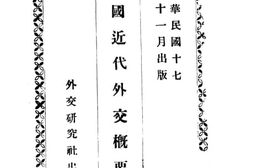 華民國十七
十一月出版
國近代外交概要
外交研究社